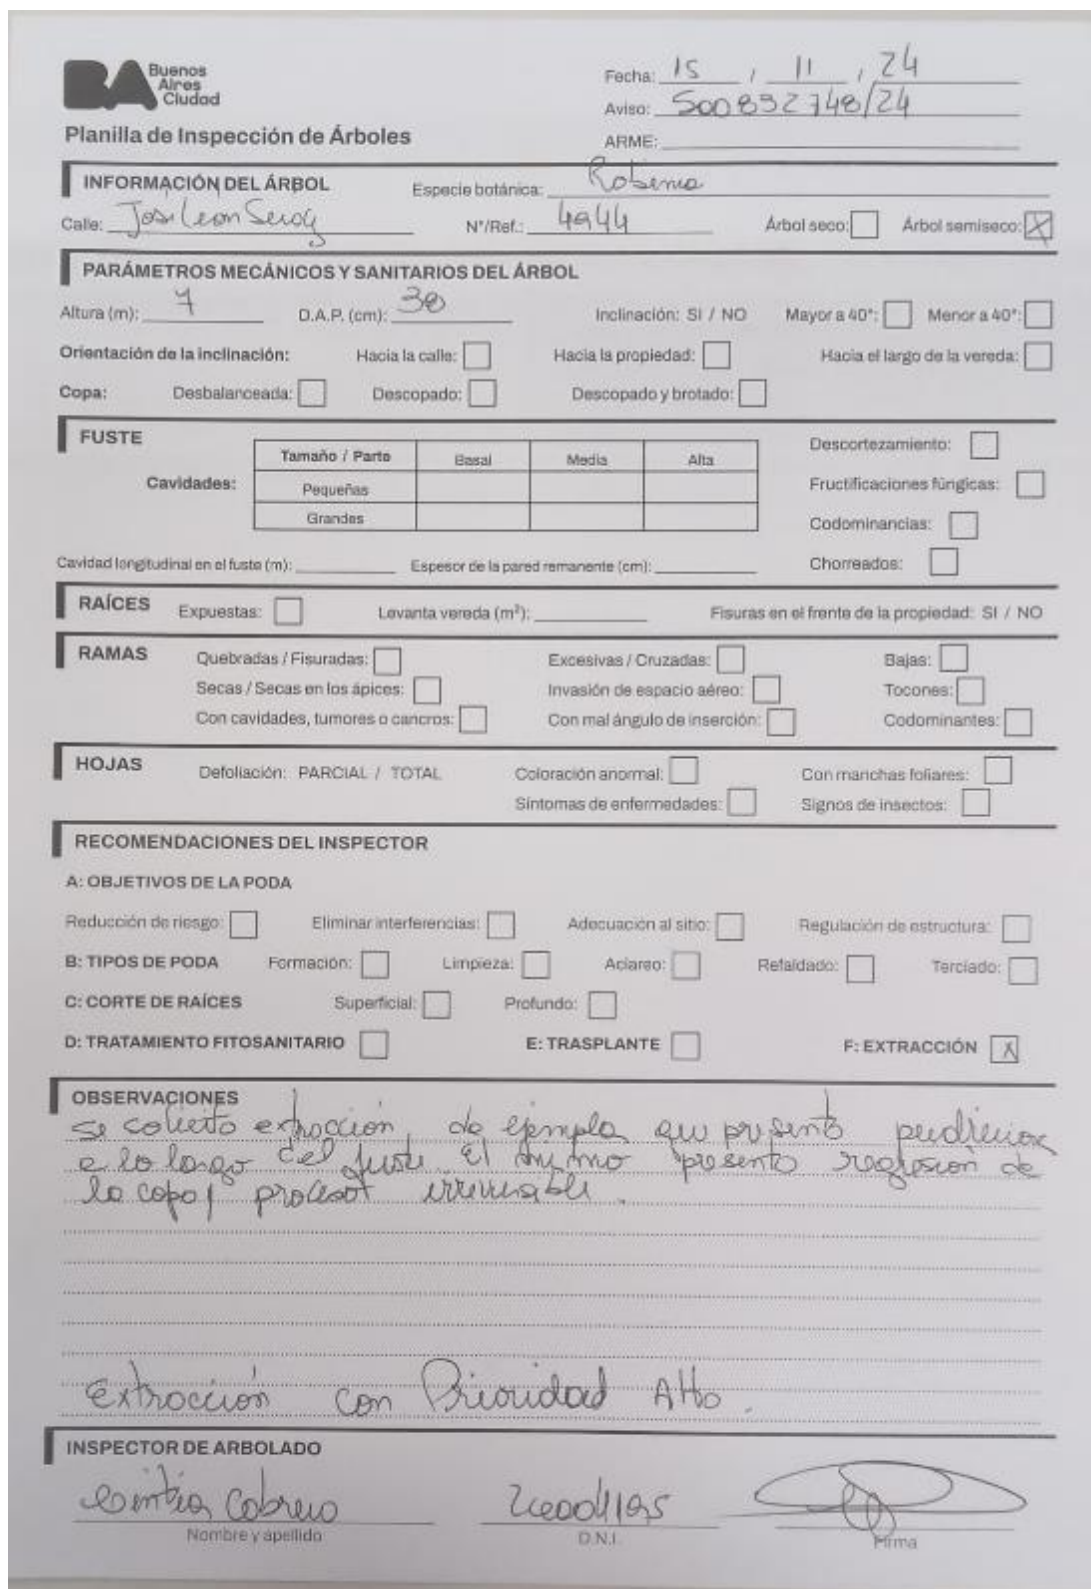 BA Buenos Aires Ciudad
Fecha: 15 / 11 / 24
Aviso: 500832748/24
Planilla de Inspección de Árboles
ARME:
INFORMACIÓN DEL ÁRBOL Especie botánica: Robinia
Calle: José León N°/Ref.: 4944 Árbol seco: Árbol semiseco: X
PARÁMETROS MECÁNICOS Y SANITARIOS DEL ÁRBOL
Altura (m): 7 D.A.P. (cm): 30 Inclinación: SI / NO Mayor a 40°: Menor a 40°:
Orientación de la inclinación: Hacia la calle: Hacia la propiedad: Hacia el largo de la vereda:
Copa: Desbalanceada: Descopado: Descopado y brotado:
FUSTE
Cavidades:
Tamaño / Parte Basal Media Alta
Pequeñas
Grandes
Descortezamiento:
Fructificaciones fúngicas:
Codominancias:
Cavidad longitudinal en el fuste (m): Espesor de la pared remanente (cm): Chorreados:
RAÍCES Expuestas: Levanta vereda (m²): Fisuras en el frente de la propiedad: SI / NO
RAMAS Quebradas / Fisuradas: Excesivas / Cruzadas: Bajas:
Secas / Secas en los ápices: Invasión de espacio aéreo: Tocones:
Con cavidades, tumores o cancros: Con mal ángulo de inserción: Codominantes:
HOJAS Defoliación: PARCIAL / TOTAL Coloración anormal: Con manchas foliares:
Síntomas de enfermedades: Signos de insectos:
RECOMENDACIONES DEL INSPECTOR
A: OBJETIVOS DE LA PODA
Reducción de riesgo: Eliminar interferencias: Adecuación al sitio: Regulación de estructura:
B: TIPOS DE PODA Formación: Limpieza: Aclareo: Refaldado: Terciado:
C: CORTE DE RAÍCES Superficial: Profundo:
D: TRATAMIENTO FITOSANITARIO E: TRASPLANTE F: EXTRACCIÓN X
OBSERVACIONES
se solicita extracción de ejemplar que presenta pudrición
a lo largo del fuste. El mismo presenta regresión de
la copa, proceso irreversible.
Extracción con Prioridad Alta.
INSPECTOR DE ARBOLADO
Cintia Cabrera
Nombre y apellido D.N.I. Firma